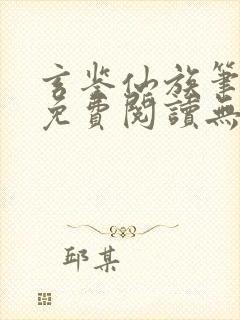 玄鉴仙族笔
免費閱讀無
邱某